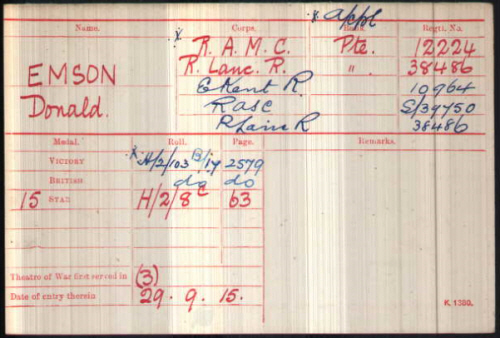 Name. Corps. Rank. Regtl. No.
* appl
EMSON
Donald.
* R. A. M. C. Pte. 12224
R. Lanc. R. " 38486
E Kent R. 10964
RASC S/39750
R Lanc R 38486
Medal. Roll. Page. Remarks.
VICTORY * H/2/103 B/17 2579
BRITISH do do
15 STAR H/2/8C 63
Theatre of War first served in (3)
Date of entry therein 29. 9. 15.
K 1380.